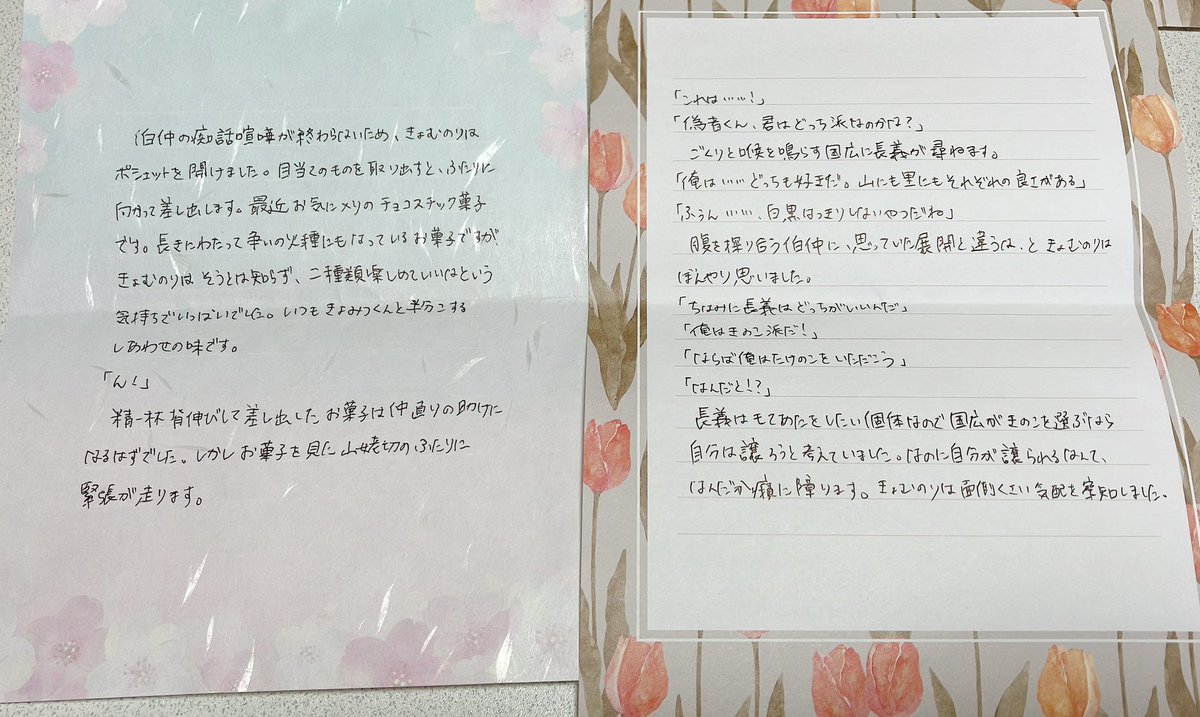 伯仲の痴話喧嘩が終わらないため、きよむのりは
ポシェットを開けました。目当てのものを取り出すと、ふたりに
向かって差し出します。最近お気に入りのチョコスチック菓子
です。長きにわたって争いの火種にもなっているお菓子ですが
きよむのりはそうとは知らず、二種類楽しめていいなという
気持ちでいっぱいでした。いつもきよみつくんと半分こする
しあわせの味です。
「ん！」
精一杯背伸びして差し出したお菓子は仲直りの助けに
なるはずでした。しかしお菓子を見た山姥切のふたりに
緊張が走ります。
「これは……！」
「偽者くん、君はどっち派なのかな？」
ごくりと喉を鳴らす国広に長義が尋ねます。
「俺は……どっちも好きだ。山にも里にもそれぞれの良さがある」
「ふぅん……、白黒はっきりしないやつだね」
腹を探り合う伯仲に、思っていた展開と違うな、ときよむのりは
ぼんやり思いました。
「ちなみに長義はどっちがいいんだ」
「俺はきのこ派だ！」
「ならば俺はたけのこをいただこう」
「なんだと！？」
長義はもてあたをしたい個体なので国広がきのこを選ぶなら
自分は譲ろうと考えていました。なのに自分が譲られるなんて、
なんだか癪に障ります。きよむのりは面倒くさい気配を察知しました。